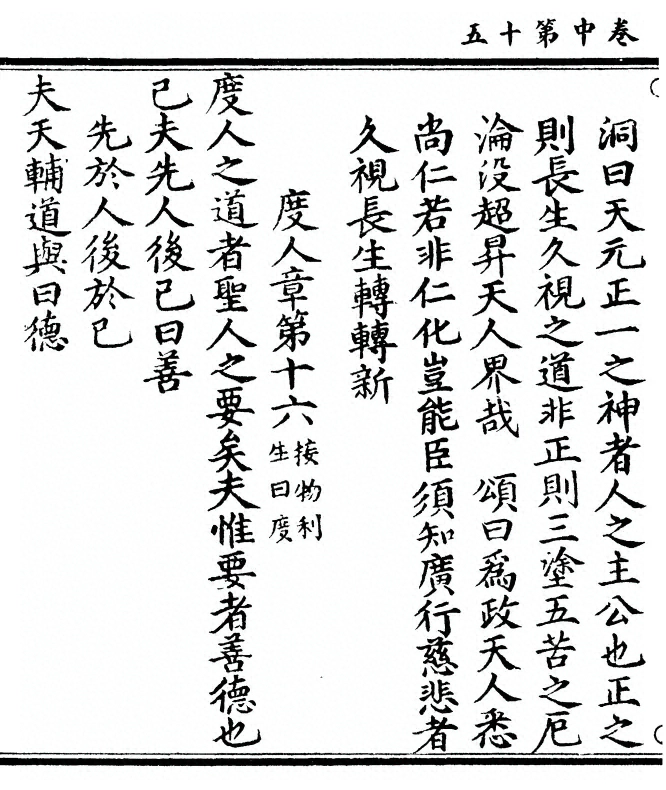 卷中第十五
洞曰天元正一之神者人之主公也正之
則長生久視之道非正則三塗五苦之厄
淪没超昇天人界哉　頌曰爲政天人悉
尚仁若非仁化豈能臣須知廣行慈悲者
久視長生轉轉新
度人章第十六接物利生曰度
度人之道者聖人之要矣夫惟要者善德也
已夫先人後己曰善
先於人後於己
夫天輔道與曰德